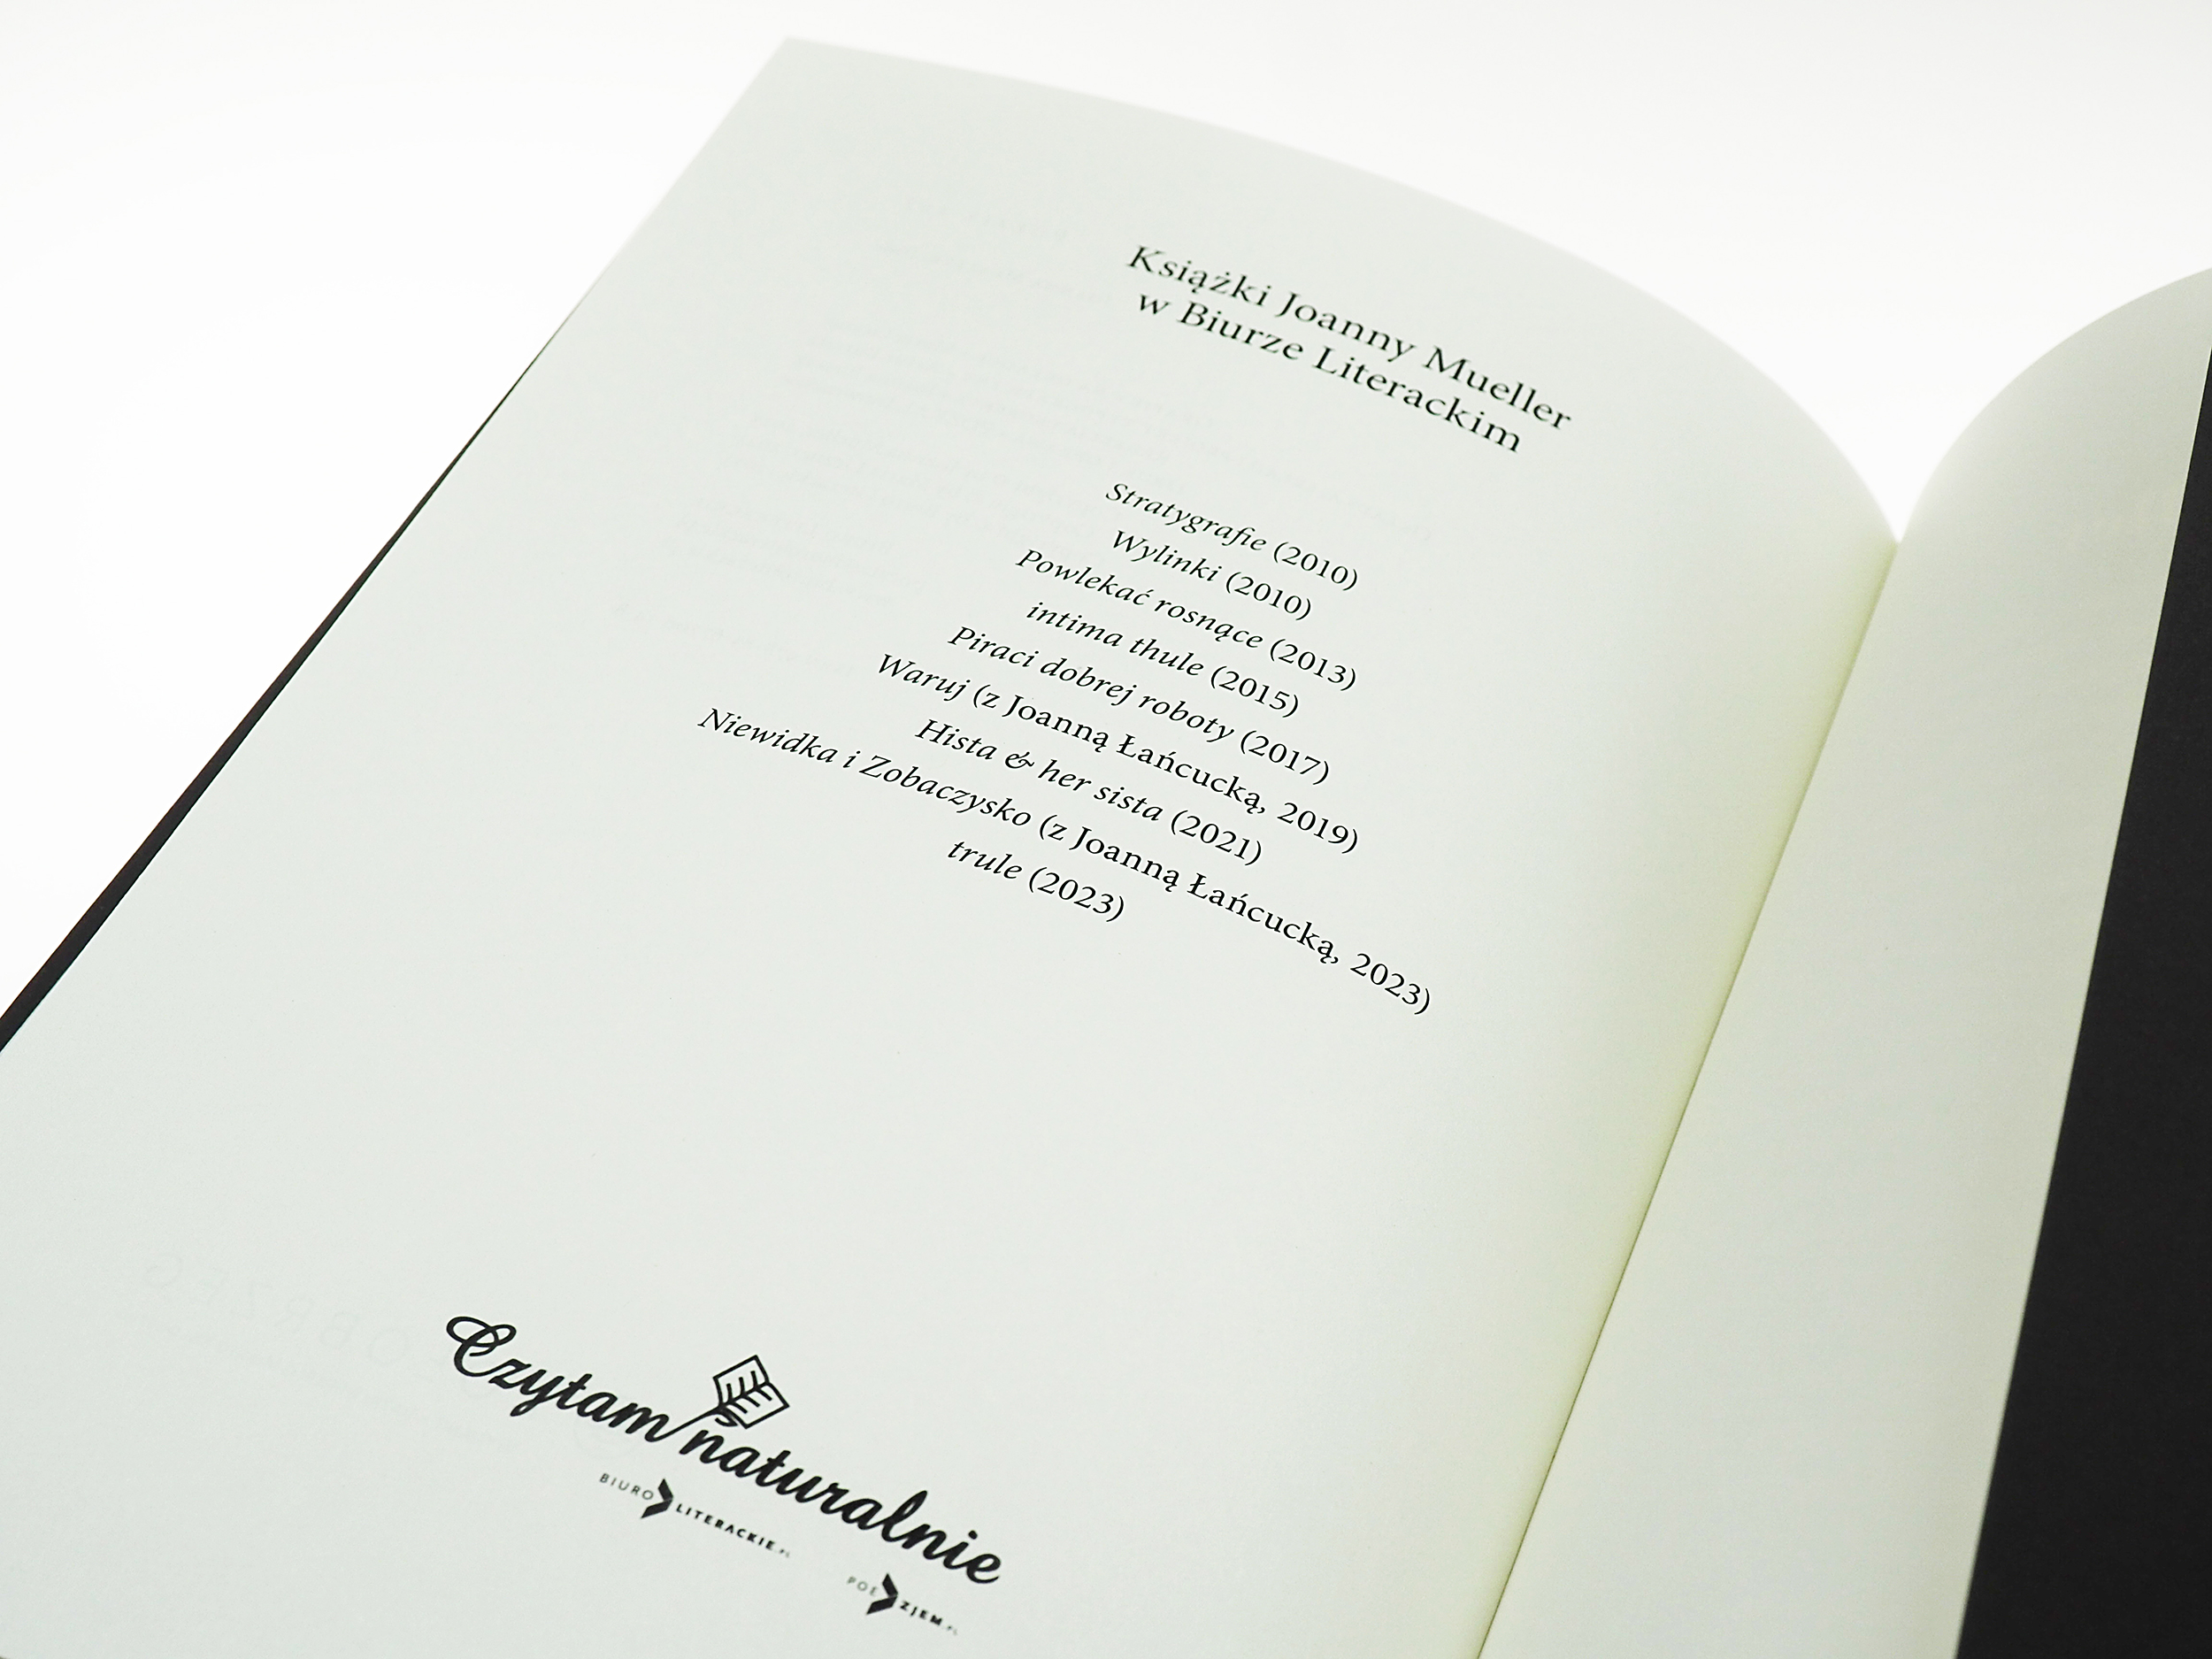 Książki Joanny Mueller
w Biurze Literackim
Stratygrafie (2010)
Wylinki (2010)
Powlekać rosnące (2013)
intima thule (2015)
Piraci dobrej roboty (2017)
Waruj (z Joanną Łańcucką, 2019)
Hista & her sista (2021)
Niewidka i Zobaczysko (z Joanną Łańcucką, 2023)
trule (2023)
Czytam naturalnie
BIURO LITERACKIE.PL
POEZJEM.PL